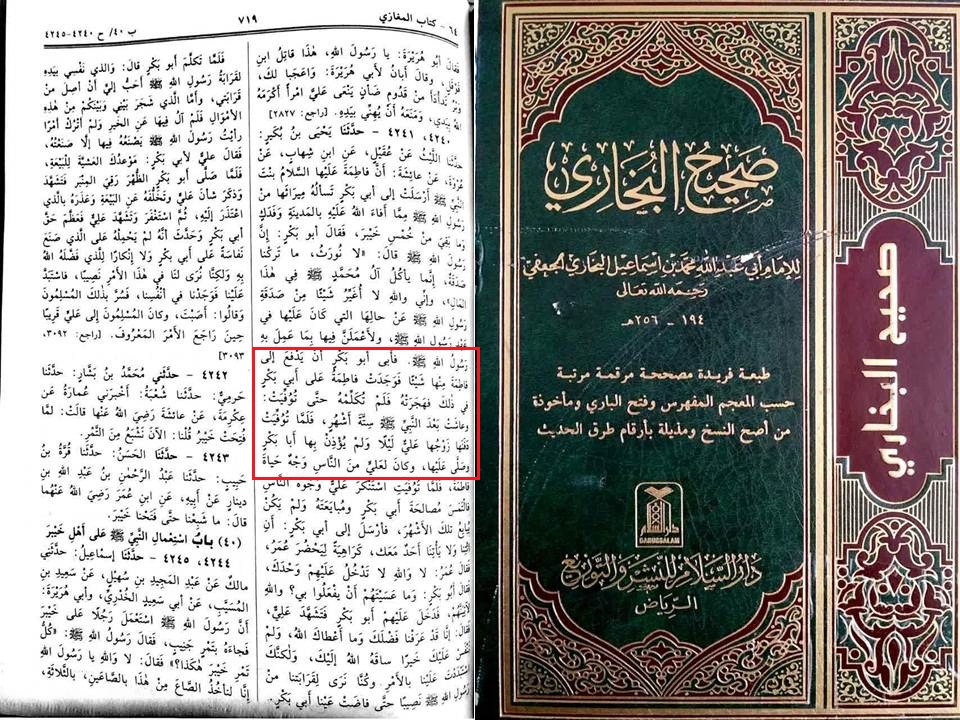 ٦٤ - كتاب المغازي
٧١٩
ب ٤٠/ ح ٤٢٤٠-٤٢٤٥
فَقالَ أبُو هُرَيْرَةَ: يا رَسُولَ اللهِ، هٰذَا قاتِلُ ابنِ
قَوْقَلٍ. وقالَ أبانُ لأبي هُرَيْرَةَ: وَاعَجَبًا لكَ،
وَبْرٌ تَدَأْدَأَ مِنْ قَدُومِ ضَأنٍ يَنْعَى عَلَيَّ امْرأً أكْرَمَهُ
اللهُ بِيَدِي، وَمَنَعَهُ أنْ يُهِنِّي بِيَدِهِ. [راجع: ٢٨٢٧]
٤٢٤٠، ٤٢٤١ - حدَّثَنا يَحْيَى بنُ بُكَيرٍ:
حدَّثَنا اللَّيْثُ عَنْ عُقَيْلٍ، عَنِ ابنِ شِهابٍ، عَنْ
عُرْوَةَ، عَنْ عائِشَةَ: أنَّ فاطِمَةَ عَلَيْها السلامُ بنْتَ
النَّبِيِّ ﷺ أرْسَلَتْ إلى أبي بَكْرٍ تَسألُهُ مِيرَاثَها مِنْ
رَسُولِ اللهِ ﷺ مِمَّا أفاءَ اللهُ عَلَيْهِ بالمَدِينَةِ وَفَدَكٍ
وَما بَقِيَ مِنْ خُمْسِ خَيْبَرَ، فَقالَ أبو بَكْرٍ: إنَّ
رَسُولَ اللهِ ﷺ قالَ: «لا نُورَثُ، ما تَرَكْنا
صَدَقَةٌ، إنَّما يأكُلُ آلُ مُحَمَّدٍ ﷺ في هٰذَا
المَالِ»، وإني واللهِ لا أُغَيِّرُ شَيْئًا مِنْ صَدَقَةِ
رَسُولِ اللهِ ﷺ عَنْ حالِهَا التي كانَ عَلَيْها في
عَهْدِ رَسُولِ اللهِ ﷺ، ولأَعْمَلَنَّ فِيها بِما عَمِلَ بِهِ
رَسُولُ اللهِ ﷺ. فأَبَى أبو بَكْرٍ أنْ يَدْفَعَ إلى
فاطِمَةَ مِنْها شَيْئًا فَوَجَدَتْ فاطِمَةُ عَلى أبي بَكْرٍ
في ذٰلكَ فهَجَرَتْهُ فَلَمْ تُكَلِّمْهُ حتَّى تُوُفِّيَتْ.
وعاشَتْ بَعْدَ النَّبِيِّ ﷺ سِتَّةَ أشْهُرٍ، فَلَمَّا تُوُفِّيَتْ
دَفَنَها زَوْجُها عَليٌّ لَيْلًا وَلمْ يُؤْذِنْ بِها أبا بَكْرٍ
وصَلَّى عَلَيْها، وكانَ لعَلِيٍّ مِنَ النَّاسِ وَجْهٌ حَياةَ
فاطِمَةَ، فَلَمَّا تُوُفِّيَتِ اسْتَنْكَرَ عَليٌّ وُجُوهَ النَّاسِ
فالْتَمَسَ مُصالَحَةَ أبي بَكْرٍ ومُبايَعَتَهُ ولَمْ يَكُنْ
يُبايعُ تلكَ الأشْهُرَ، فأَرْسَلَ إلى أبي بَكْرٍ: أنِ
ائْتِنا ولا يَأْتِنا أحَدٌ مَعَكَ، كَرَاهِيَةً لِيَحْضُرَ عُمَرُ،
فَقالَ عُمَرُ: لا واللهِ لا تَدْخُلُ عَلَيْهِمْ وَحْدَكَ،
فَقالَ أبُو بَكْرٍ: وَما عَسَيْتَهُمْ أنْ يَفْعَلُوا بي؟ واللهِ
لآتِيَنَّهُمْ، فَدَخَلَ عَلَيْهِمْ أبُو بَكْرٍ فَتَشَهَّدَ عَليٌّ،
فَقالَ: إنَّا قَدْ عَرَفْنا فَضْلَكَ وَما أعْطاكَ اللهُ، ولَمْ
نَنْفَسْ عَلَيْكَ خَيرًا ساقَهُ اللهُ إلَيْكَ، ولٰكِنَّكَ
اسْتَبْدَدْتَ عَلَيْنا بالأمْرِ. وكُنَّا نَرَى لِقَرَابَتِنا مِنْ
رَسُولِ اللهِ ﷺ نَصِيبًا حتَّى فاضَتْ عَيْنا أبي بَكْرٍ.
فَلَمَّا تَكَلَّمَ أبُو بَكْرٍ قالَ: وَالذي نَفْسِي بِيَدِهِ
لقَرَابَةُ رَسُولِ اللهِ ﷺ أحَبُّ إليَّ أنْ أصِلَ مِنْ
قَرَابَتي، وأمَّا الَّذِي شَجَرَ بَيْنِي وَبَيْنَكُمْ مِنْ هٰذِهِ
الأمْوَالِ فَلَمْ آلُ فِيها عَنِ الخَيرِ وَلمْ أتْرُكْ أمْرًا
رأيْتُ رَسُولَ اللهِ ﷺ يَصْنَعُهُ فِيها إلَّا صَنَعْتُهُ.
فَقالَ عَليٌّ لأبي بَكْرٍ: مَوْعِدُكَ العَشِيَّةُ لِلْبَيْعَةِ،
فَلَمَّا صَلَّى أبو بَكْرٍ الظُّهْرَ رَقِيَ المِنْبَرِ فَتَشَهَّدَ
وَذَكَرَ شأنَ عَليٍّ وتَخَلُّفَهُ عَنِ البَيْعَةِ وَعَذَرَهُ بالَّذي
اعْتَذَرَ إلَيْهِ، ثُمَّ اسْتَغْفَرَ وَتَشَهَّدَ عَليٌّ فَعَظَّمَ حَقَّ
أبي بَكْرٍ وَحَدَّثَ أنَّهُ لمْ يَحْمِلْهُ عَلى الَّذي صَنَعَ
نَفاسَةً عَلى أبي بَكْرٍ وَلا إنْكارًا لِلَّذي فَضَّلَهُ اللهُ
بِهِ وَلكِنَّا نُرَى لنَا في هٰذَا الأمْرِ نَصِيبًا، فَاسْتَبَدَّ
عَلَيْنا فَوَجَدْنا في أنْفُسِنا، فَسُرَّ بِذٰلكَ المُسْلِمُونَ
وَقالُوا: أصَبْتَ، وكانَ المُسْلِمُونَ إلى عَليٍّ قَرِيبًا
حِينَ رَاجَعَ الأمْرَ المَعْرُوفَ. [راجع: ٣٠٩٢،
٣٠٩٣]
٤٢٤٢ - حدَّثَني مُحَمَّدُ بنُ بَشَّارٍ: حدَّثَنا
حَرَمِيٌّ: حدَّثَنا شُعْبَةُ: أخْبَرَنِي عُمارَةُ عَنْ
عِكْرِمَةَ، عَنْ عائشَةَ رَضِيَ اللهُ عَنْها قالَتْ: لمَّا
فُتِحَتْ خَيْبرُ قُلْنا: الآنَ نَشْبَعُ مِنَ التَّمْرِ.
٤٢٤٣ - حدَّثَنا الحَسَنُ: حدَّثَنا قُرَّةُ بنُ
حَبِيبٍ: حدَّثَنا عَبْدُ الرَّحْمٰنِ بنُ عَبْدِ اللهِ بنِ
دِينارٍ عَنْ أبِيهِ، عَنِ ابنِ عُمَرَ رَضِيَ اللهُ عَنْهُما
قالَ: ما شَبِعْنا حتَّى فَتَحْنا خَيْبَرَ.
(٤٠) بابُ اسْتِعْمالِ النَّبيِّ ﷺ عَلى أهْلِ خَيْبَرَ
٤٢٤٤، ٤٢٤٥ - حدَّثَنا إسْماعِيلُ: حدَّثَنِي
مالكٌ عَنْ عَبْدِ المَجِيدِ بنِ سُهَيْلٍ، عَنْ سَعِيدِ بنِ
المُسَيَّبِ، عَنْ أبي سَعِيدٍ الخُدْرِيِّ، وأبي هُرَيْرَةَ:
أنَّ رَسُولَ اللهِ ﷺ اسْتَعْمَلَ رَجُلًا عَلى خَيْبَرَ
فَجاءَهُ بِتَمْرٍ جَنِيبٍ، فَقالَ رَسُولُ اللهِ ﷺ: «كُلُّ
تَمْرِ خَيْبَرَ هٰكَذا؟» فَقالَ: لا وَاللهِ يا رَسُولَ اللهِ
إنَّا لنَأخُذُ الصَّاعَ مِنْ هٰذَا بالصَّاعَينِ، بالثَّلاثَةِ،
صحيح البخاري
للإمام أبي عبد الله محمد بن إسماعيل البخاري الجعفي
رحمه الله تعالى
١٩٤ - ٢٥٦هـ
طبعة فريدة مصححة مرقمة مرتبة
حسب المعجم المفهرس وفتح الباري ومأخوذة
من أصح النسخ ومذيلة بأرقام طرق الحديث
دار السلام
DARUSSALAM
دار السلام للنشر والتوزيع
الرياض
صحيح البخاري